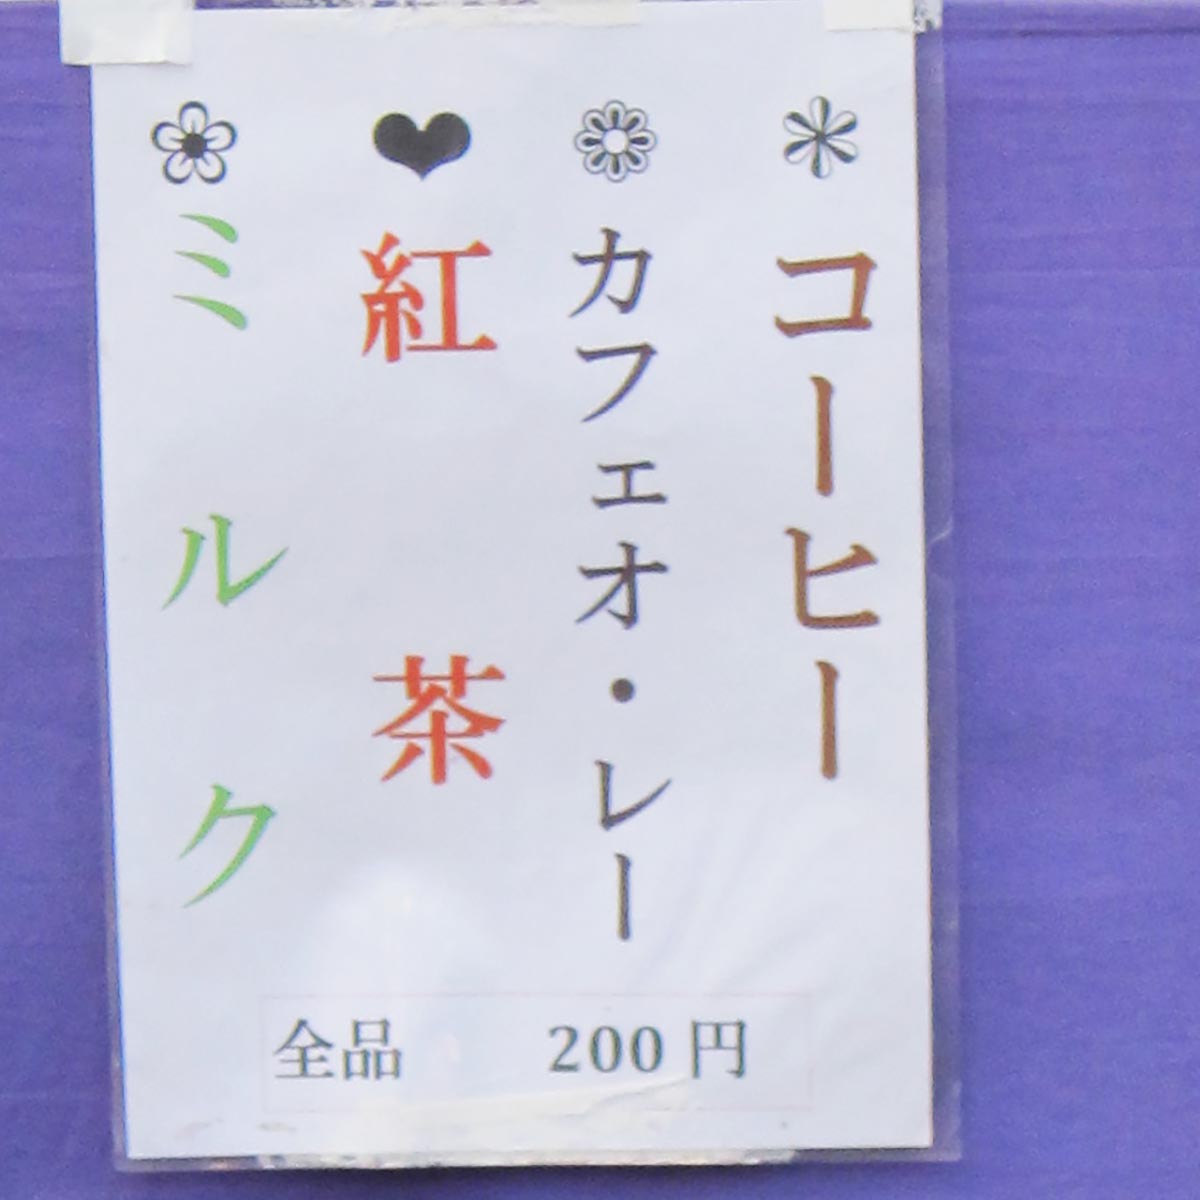 コーヒー
カフェオ・レー
紅茶
ミルク
全品 200円